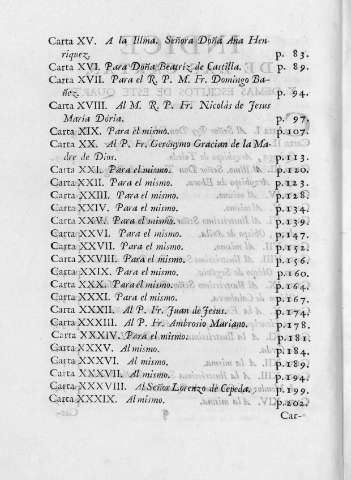 Carta XV. A la Illma. Señora Doña Ana Hen-
riquez. p. 83.
Carta XVI. Para Doña Beatriz de Castilla. p. 89.
Carta XVII. Para el R. P. M. Fr. Domingo Ba-
ñez. p. 94.
Carta XVIII. Al M. R. P. Fr. Nicolás de Jesus
Maria Doria. p. 97.
Carta XIX. Para el mismo. p.107.
Carta XX. Al P. Fr. Gerónymo Gracian de la Ma-
dre de Dios. p.113.
Carta XXI. Para el mismo. p.120.
Carta XXII. Para el mismo. p.123.
Carta XXIII. Para el mismo. p.128.
Carta XXIV. Para el mismo. p.134.
Carta XXV. Para el mismo. p.139.
Carta XXVI. Para el mismo. p.147.
Carta XXVII. Para el mismo. p.152.
Carta XXVIII. Para el mismo. p.156.
Carta XXIX. Para el mismo. p.160.
Carta XXX. Para el mismo. p.164.
Carta XXXI. Para el mismo. p.167.
Carta XXXII. Al P. Fr. Juan de Jesus. p.174.
Carta XXXIII. Al P. Fr. Ambrosio Mariano. p.178.
Carta XXXIV. Para el mismo. p.181.
Carta XXXV. Al mismo. p.184.
Carta XXXVI. Al mismo. p.189.
Carta XXXVII. Al mismo. p.194.
Carta XXXVIII. Al Señor Lorenzo de Cepeda. p.199.
Carta XXXIX. Al mismo. p.202.
Car-